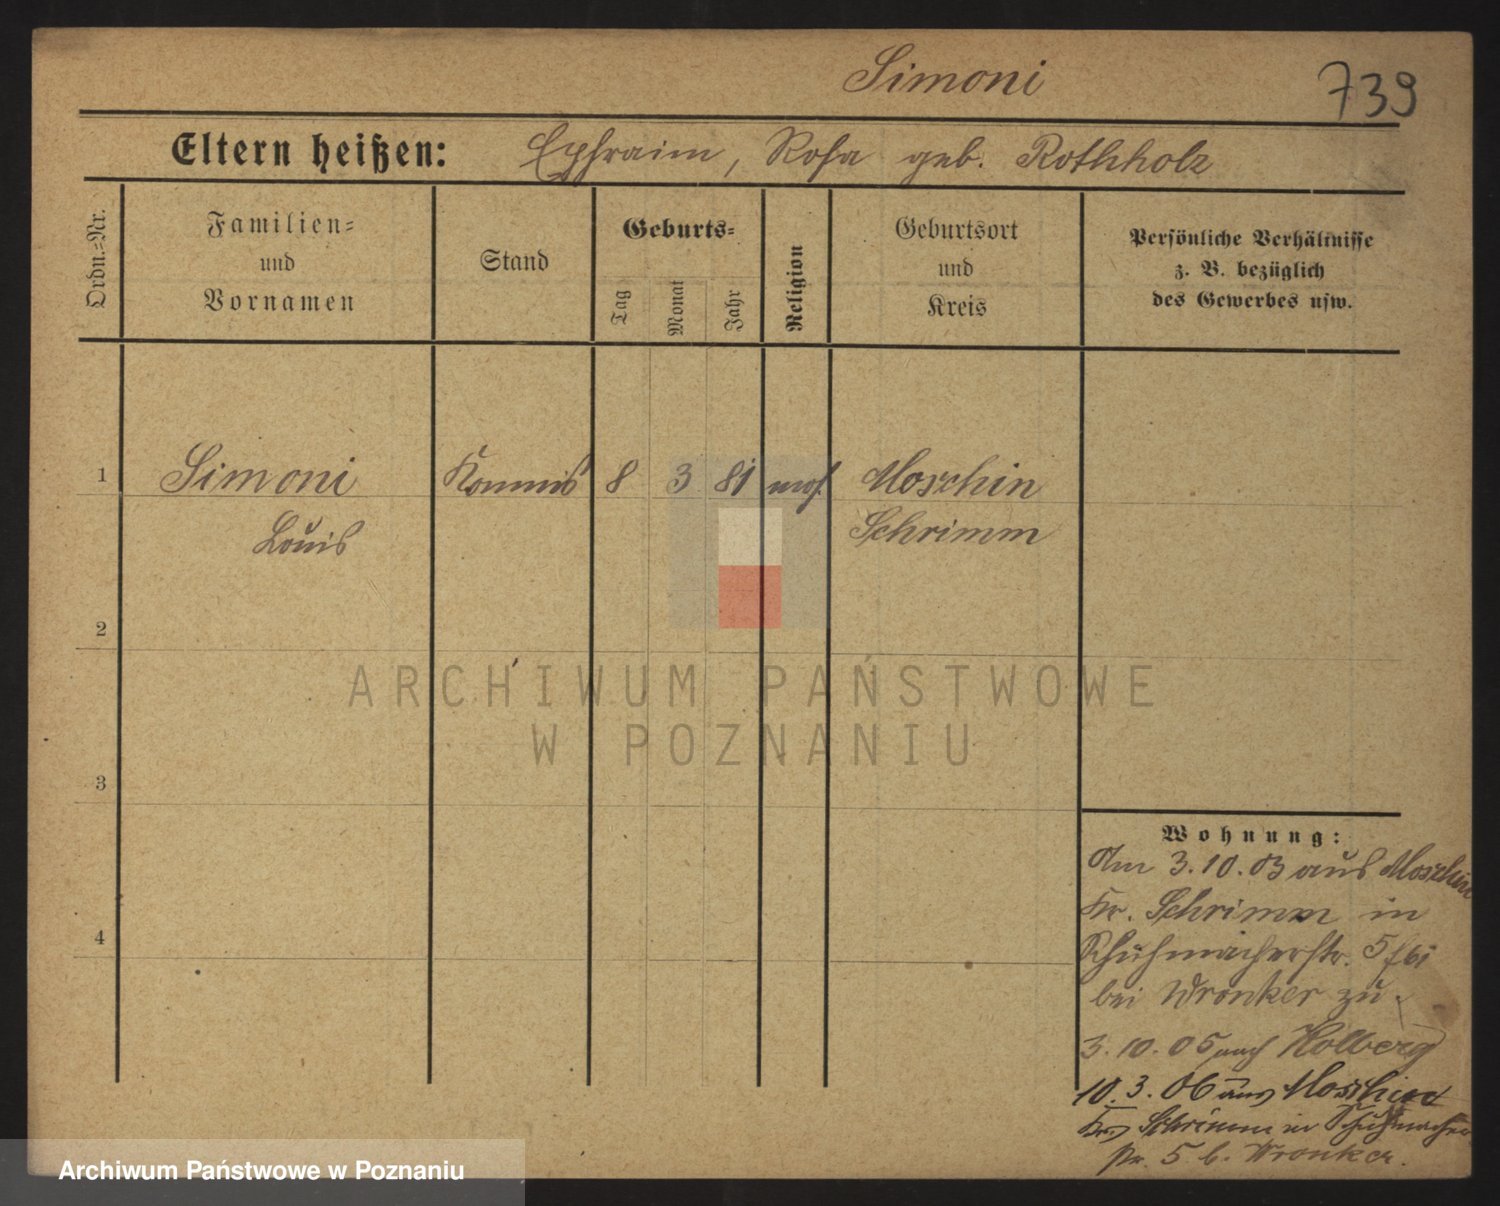 Simoni
739
Eltern heißen: Ephraim, Rosa geb. Rothholz
Ordn.=Nr.
Familien=
und
Vornamen
Stand
Geburts=
Tag
Monat
Jahr
Religion
Geburtsort
und
Kreis
Persönliche Verhältnisse
z. B. bezüglich
des Gewerbes usw.
1 Simoni Kommis 8 3 81 mos. Moschin
Louis Schrimm
2
3
4
ARCHIWUM PAŃSTWOWE
W POZNANIU
Wohnung:
Am 3.10.03 aus Moschin
Kr. Schrimm in
Schuhmacherstr. 5
bei Wronker zu.
3.10.05 nach Kolberg
10.3.06 aus Moschin
Krs Schrimm in Schuhmacher
str. 5 b. Wronker.
Archiwum Państwowe w Poznaniu